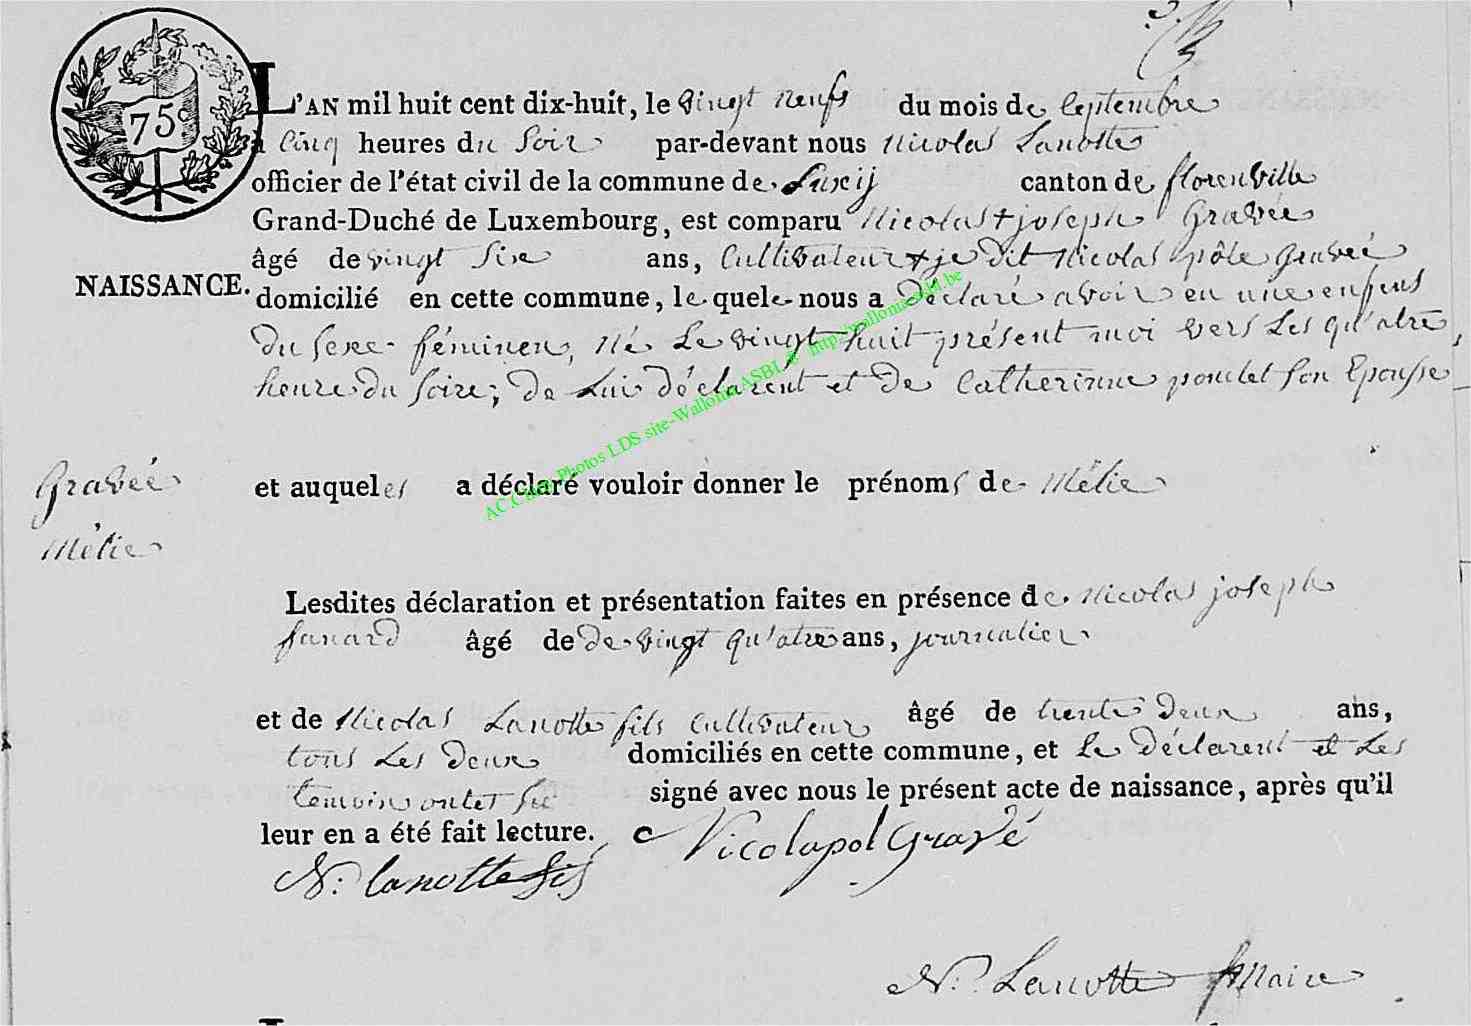 75c
L'AN mil huit cent dix-huit, le vingt neufs du mois de septembre
à cinq heures du soir par-devant nous nicolas Lanotte
officier de l'état civil de la commune de canton de florenville
Grand-Duché de Luxembourg, est comparu Nicolas + joseph Gravée
âgé de vingt six ans, Cultivateur + je dit nicolas pôle gravée
NAISSANCE. domicilié en cette commune, lequele nous a déclaré avoir eu une enfens
du sexe féminen, né Le vingt huit présent moi vers Les qu'atre
heure du soire; de Lui déclarent et de Catherinne poncelet son Epousse
Gravée
Mélie
et auqueles a déclaré vouloir donner le prénoms de Mélie
Lesdites déclaration et présentation faites en présence de nicolas joseph
âgé de de vingt qu'atre ans, journalier
et de Nicolas Lanotte fils cultivateur âgé de trente deux ans,
tous Les deux domiciliés en cette commune, et Le déclarent et Les
temoins signé avec nous le présent acte de naissance, après qu'il
leur en a été fait lecture. Nicolapol Gravé
N. lanotte fils
N. Lanotte Maire
AC Photos LDS site-Wallonia ASBL & http://wallonia-asbl.be